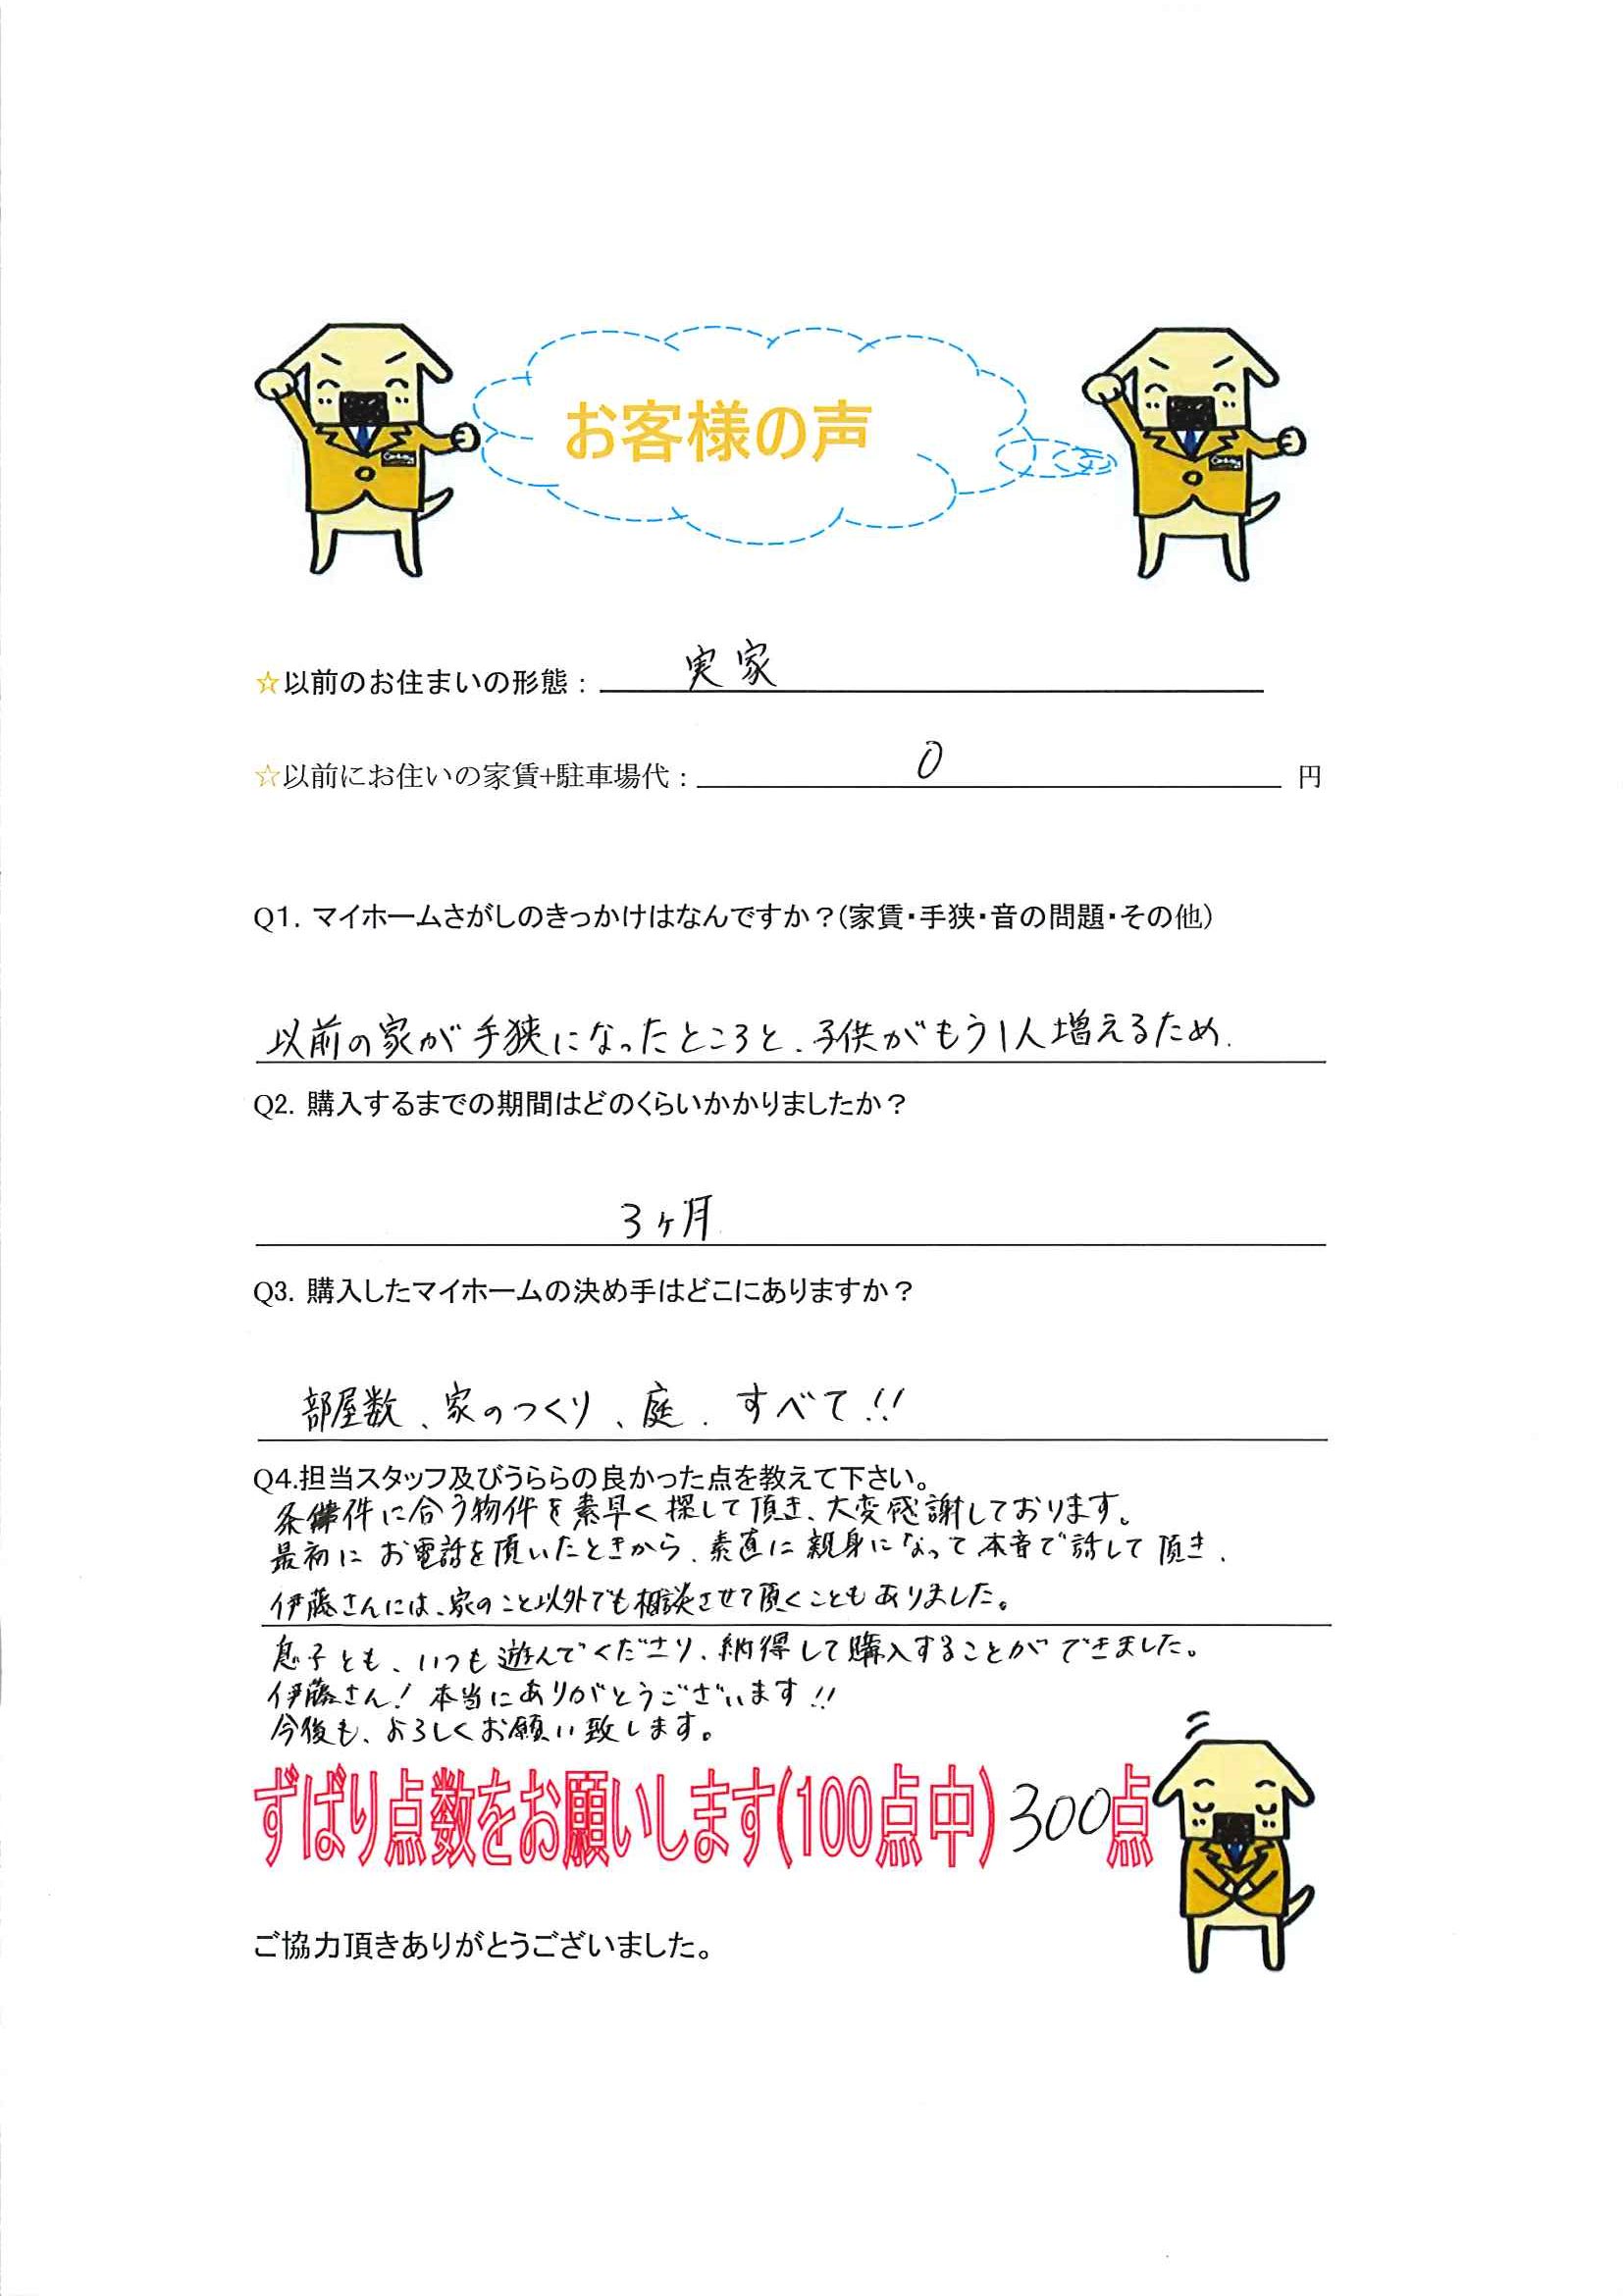 お客様の声
☆以前のお住まいの形態：実家
☆以前にお住いの家賃+駐車場代：0 円
Q1. マイホームさがしのきっかけはなんですか？(家賃・手狭・音の問題・その他)
以前の家が手狭になったところと、子供がもう1人増えるため.
Q2. 購入するまでの期間はどのくらいかかりましたか？
3ヶ月
Q3. 購入したマイホームの決め手はどこにありますか？
部屋数、家のつくり、庭. すべて!!
Q4.担当スタッフ及びうららの良かった点を教えて下さい。
条件に合う物件を素早く探して頂き、大変感謝しております。
最初にお電話を頂いたときから、素直に親身になって本音で話して頂き、
伊藤さんには、家のこと以外でも相談させて頂くこともありました。
息子とも、いつも遊んでくださり、納得して購入することができました。
伊藤さん！本当にありがとうございます!!
今後も、よろしくお願い致します。
ずばり点数をお願いします(100点中)300点
ご協力頂きありがとうございました。